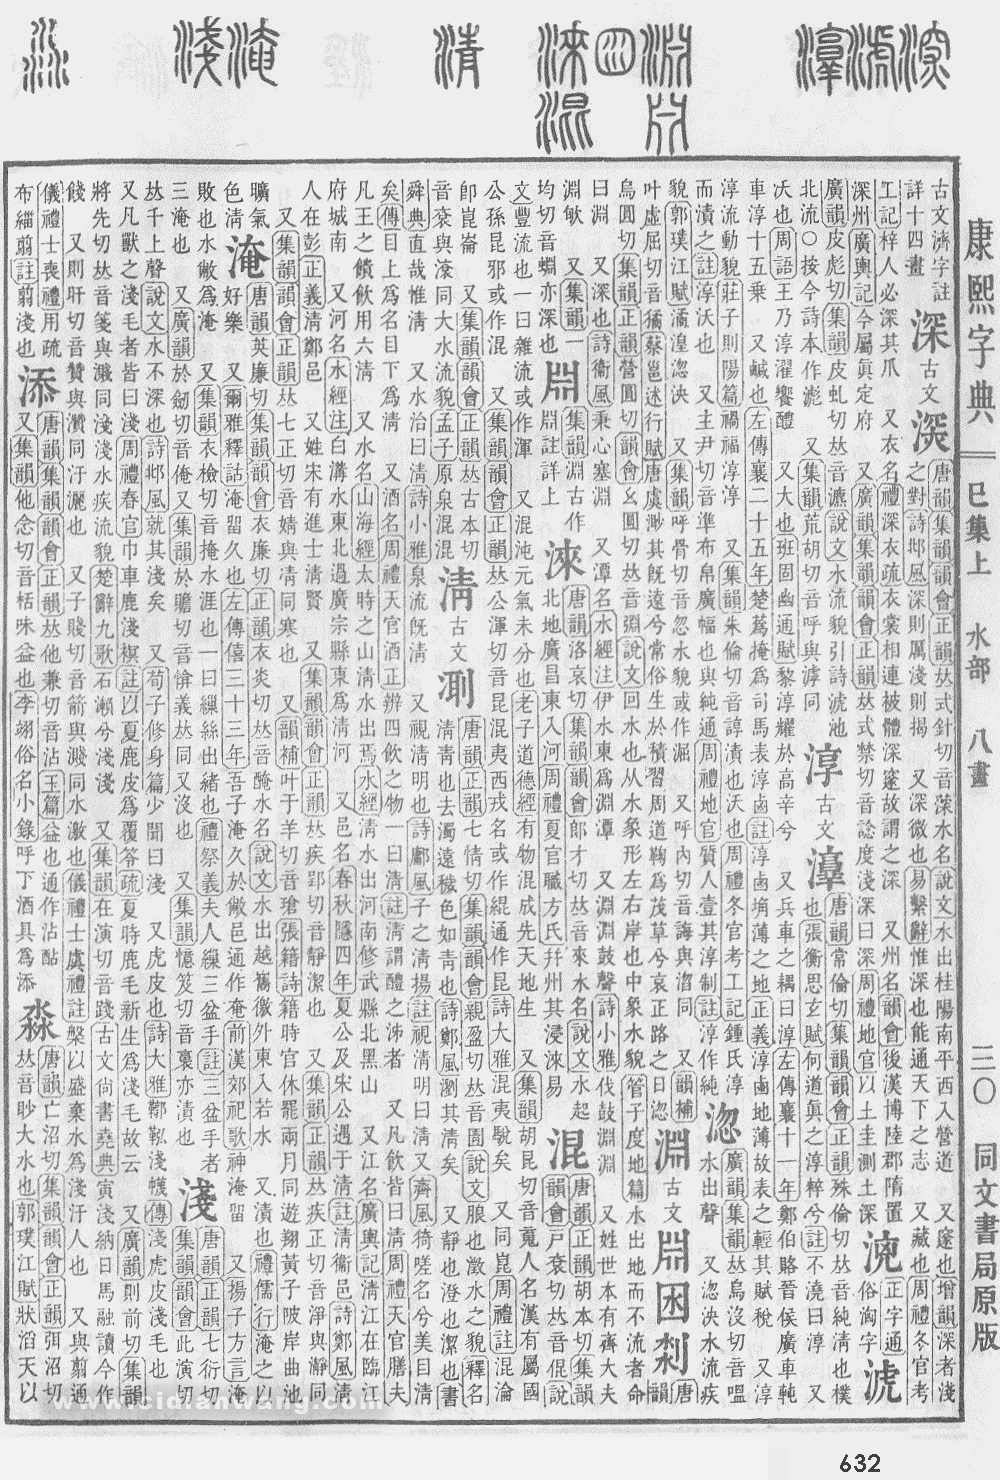 康熙字典 巳集上 水部 八畫 三〇 同文書局原版
古文濟字註
詳十四畫
深 古文 㴱
唐韻集韻韻會正韻𠀤式針切音𦸂水名說文水出桂陽南平西入營道 又邃也增韻深者淺
之對詩邶風深則厲淺則揭 又深微也易繫辭惟深也能通天下之志 又藏也周禮冬官考
工記梓人必深其爪 又衣名禮深衣疏衣裳相連被體深邃故謂之深 又州名韻會後漢博陸郡隋置
深州廣輿記今屬眞定府 又廣韻集韻韻會正韻𠀤式禁切音諗度淺深曰深周禮地官以土圭測土深
淲
廣韻皮彪切集韻皮虬切𠀤音瀌說文水流貌引詩淲池
北流○按今詩本作滮 又集韻荒胡切音呼與滹同
淳 古文 𣶏
唐韻常倫切集韻韻會正韻殊倫切𠀤音純淸也樸
也張衡思玄賦何道眞之淳粹兮註不澆曰淳 又
沃也周語王乃淳濯饗醴 又大也班固幽通賦黎淳耀於高辛兮 又兵車之耦曰淳左傳襄十一年鄭伯賂晉侯廣車軘
車淳十五乗 又鹹也左傳襄二十五年楚蔿掩爲司馬表淳鹵註淳鹵埆薄之地正義淳鹵地薄故表之輕其賦稅 又淳
淳流動貌莊子則陽篇禍福淳淳 又集韻朱倫切音諄漬也沃也周禮冬官考工記鍾氏淳
而漬之註淳沃也 又主尹切音準布帛廣幅也與純通周禮地官質人壹其淳制註淳作純
淴
廣韻集韻𠀤烏沒切音嗢
水出聲 又淴泱水流疾
貌郭璞江賦潏湟淴泱 又集韻呼骨切音忽水貌或作淈 又呼內切音誨與㳷同 又韻補
叶虛屈切音獝蔡邕述行賦唐虞渺其旣遠兮常俗生於積習周道鞠爲茂草兮哀正路之日淴
淵 古文 𣶒 囦 𠝕
烏圓切集韻正韻縈圓切韻會幺圓切𠀤音蜵說文回水也从水象形左右岸也中象水貌管子度地篇水出地而不流者命
曰淵 又深也詩衞風秉心塞淵 又潭名水經注伊水東爲淵潭 又淵淵鼓聲詩小雅伐鼓淵淵 又姓世本有齊大夫
淵敏 又集韻一
均切音蜵亦深也
𣶒
集韻淵古作
𣶒註詳上
淶
唐韻洛哀切集韻郞才切𠀤音來水名說文水起
北地廣昌東入河周禮夏官職方氏幷州其浸淶易
混
唐韻正韻胡本切集韻
韻會戸衮切𠀤音倱說
文豐流也一曰雜流或作渾 又混沌元氣未分也老子道德經有物混成先天地生 又集韻胡昆切音䰟人名漢有屬國
公孫昆邪或作混 又集韻韻會正韻𠀤公渾切音昆混夷西戎名或作緄通作昆詩大雅混夷駾矣 又同崑周禮註混淪
卽崑崙 又集韻韻會正韻𠀤古本切
音衮與滾同大水流貌孟子原泉混混
淸 古文 𣶨
唐韻正韻七情切集韻韻會親盈切𠀤音圊說文朖也澂水之貌釋名
淸靑也去濁遠穢色如靑也詩鄭風瀏其淸矣 又靜也澄也潔也書
舜典直哉惟淸 又水治曰淸詩小雅泉流旣淸 又視淸明也詩鄘風子之淸揚註視淸明曰淸又齊風猗嗟名兮美目淸
矣傳目上爲名目下爲淸 又酒名周禮天官酒正辨四飮之物一曰淸註淸謂醴之泲者 又凡飮皆曰淸周禮天官膳夫
凡王之饋飮用六淸 又水名山海經太時之山淸水出焉水經淸水出河南修武縣北黑山 又江名廣輿記淸江在臨江
府城南 又河名水經注白溝水東北過廣宗縣東爲淸河 又邑名春秋隱四年夏公及宋公遇于淸註淸衞邑詩鄭風淸
人在彭正義淸鄭邑 又姓宋有進士淸賢 又集韻韻會正韻𠀤疾郢切音靜潔也 又集韻正韻𠀤疾正切音淨與瀞同
又集韻韻會正韻𠀤七正切音婧與凊同寒也 又韻補叶于羊切音瑲張籍詩籍時官休罷兩月同遊翔黃子陂岸曲池
曠氣
色淸
淹
唐韻英廉切集韻韻會衣廉切正韻衣炎切𠀤音醃水名說文水出越巂徼外東入若水 又漬也禮儒行淹之以
好樂 又爾雅釋詁淹留久也左傳僖三十三年吾子淹久於敝邑通作奄前漢郊祀歌神淹留 又揚子方言淹
敗也水敝爲淹 又集韻衣檢切音掩水涯也一曰繅絲出緒也禮祭義夫人繅三盆手註三盆手者
三淹也 又廣韻於劒切音俺又集韻於贍切音愴義𠀤同又沒也 又集韻憶笈切音裛亦漬也
淺
唐韻正韻七衍切
集韻韻會此演切
𠀤千上聲說文水不深也詩邶風就其淺矣 又荀子修身篇少聞曰淺 又虎皮也詩大雅鞹鞃淺幭傳淺虎皮淺毛也
又凡獸之淺毛者皆曰淺周禮春官巾車鹿淺榠註以夏鹿皮爲覆笭疏夏時鹿毛新生爲淺毛故云 又廣韻則前切集韻
將先切𠀤音箋與濺同淺淺水疾流貌楚辭九歌石瀨兮淺淺 又集韻在演切音踐古文尙書堯典寅淺納日馬融讀今作
餞 又則旰切音贊與灒同汙灑也 又子賤切音箭與濺同水激也儀禮士虞禮註槃以盛棄水爲淺汙人也 又與翦通
儀禮士喪禮用疏
布緇翦註翦淺也
添
唐韻集韻韻會正韻𠀤他兼切音沾玉篇益也通作沾𩚹
又集韻他念切音栝味益也李翊俗名小錄呼丁酒具爲添
淼
唐韻亡沼切集韻韻會正韻弭沼切
𠀤音眇大水也郭璞江賦狀滔天以
www.cidianwang.com
632